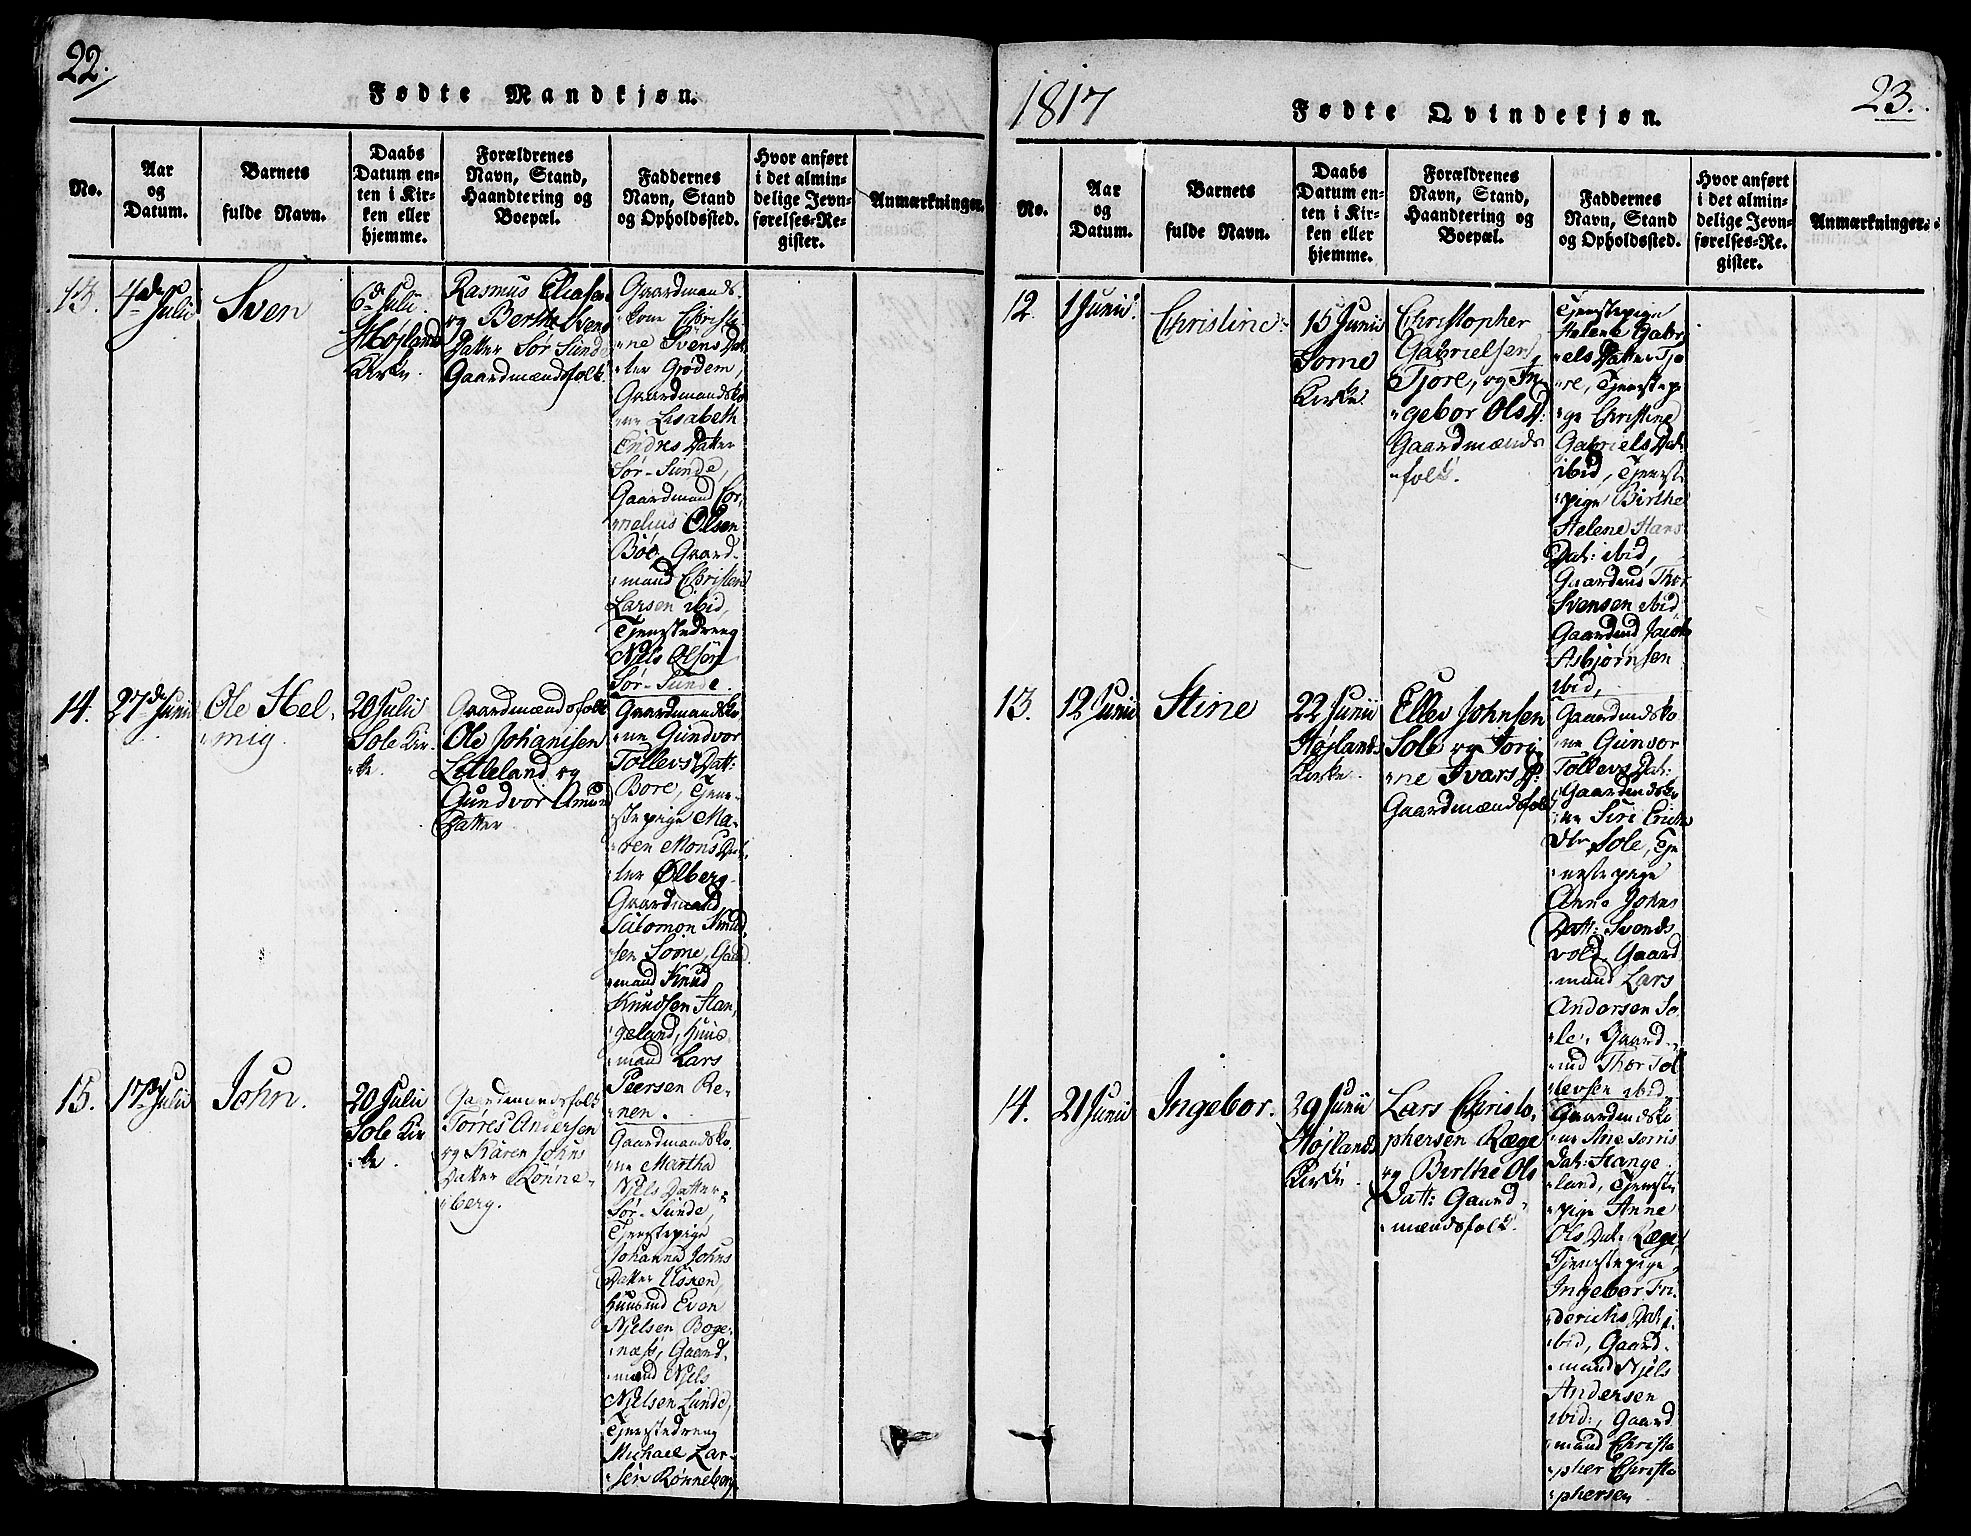 22.
Fødte Mandkjøn.
No.
Aar
og
Datum.
Barnets
fulde Navn.
Daabs
Datum en-
ten i Kir-
ken eller
hjemme.
Forældrenes
Navn, Stand,
Haandtering og
Boepæl.
Faddernes
Navn, Stand
og Opholdssted.
Hvor anført
i det almin-
delige Jevn-
førelses-Re-
gister.
Anmærkninger.
13.
4de Julii
Sven
6te Julii
Højlands
Kirke.
Rasmus Eliasen
og Berthe Svens
Datter Sør Sunde
Gaardmændsfolk.
Gaardmands-
kone Christi-
ne Svens Dat-
ter Grødem,
Gaardmandsko-
ne Lisabeth
Endres Datter
Sør-Sunde,
Gaardmand Cor-
nelius Olsen
Bøe, Gaard-
mand Christen
Larsen ibid,
Tjenestedreng
Njels Olsen
Sør-Sunde.
14.
27de Junii
Ole Hel-
mig.
20 Julii
Sole Kir-
ke.
Gaardmændsfolk
Ole Johanisen
Litleland og
Gundvor Amund
Datter
Gaardmandsko-
ne Gundvor
Tollevs Datt:
Bore, Tjene-
stepige Ma-
ren Mons Dat-
ter Ølberg
Gaardmand
Salomon Knud-
sen Somme, Gaard
mand Knud
Knudsen Stan-
geland, Huus-
mand Lars
Peersen Re-
nen.
15.
17de Julii
John.
20 Julii
Sole Kir-
ke.
Gaardmændsfolk
Tørres Andersen
og Karen Johns
Datter Rønne-
berg.
Gaardmandsko-
ne Martha
Njels Datter
Sør-Sunde,
Tjenestepige
Johanna Johns
Datter Usken,
Huusmd Even
Njelsen Boge-
næss, Gaard-
mand Njels
Njelsen Sunde,
Tjenestedreng
Michael Lar-
sen Rønneberg
1817
Fødte Qvindekjøn.
23.
No.
Aar
og
Datum.
Barnets
fulde Navn.
Daabs
Datum en-
ten i Kir-
ken eller
hjemme.
Forældrenes
Navn, Stand,
Haandtering og
Boepæl.
Faddernes
Navn, Stand
og Opholdssted.
Hvor anført
i det almin-
delige Jevn-
førelses-Re-
gister.
Anmærkninger.
12.
1 Junii.
Christine.
15 Junii
Some
Kirke.
Christopher
Gabrielsen
Tjore, og In-
gebor Ols D:
Gaardmænds-
folk.
Tjenestepige
Helene Gabri-
els Datter Tjo-
re, Tjenestepi-
ge Christine
Gabriels Dat:
ibid, Tjeneste-
pige Birthe
Helene Hans
Dat: ibid,
Gaardmd Thor
Svensen ibid,
Gaardmd Jacob
Asbjørnsen
ibid,
13.
12 Junii
Stine
22 Junii
Højlands
Kirke.
Ellev Johnsen
Sole og Jori-
ne Ivars D:
Gaardmændsfolk
Gaardmdsko-
ne Gunvor
Tollevs Dat:
Gaardmdsko-
ne Siri Erichs
Dtr Sole, Tje-
nestepige
Anna Johns
Datt: Svends
vold, Gaard
mand Lars
Andersen So-
le, Gaard-
md Thor Tol-
levsen ibid,
14.
21 Junii
Ingebor.
29 Junii
Højlands
Kirke.
Lars Christo-
phersen Ræge
og Birthe Ols
Datt: Gaard-
mændsfolk.
Gaardmdsko-
ne Ane Tørris
Dat: Stange-
land, Tjeneste-
pige Anne
Ols Dat: Ræge,
Tjenestepige,
Ingebor Fri-
derichs Dat: i-
bid, Gaard-
mand Njels
Andersen
ibid:, Gaard
mand Christo-
pher Christo-
phersen